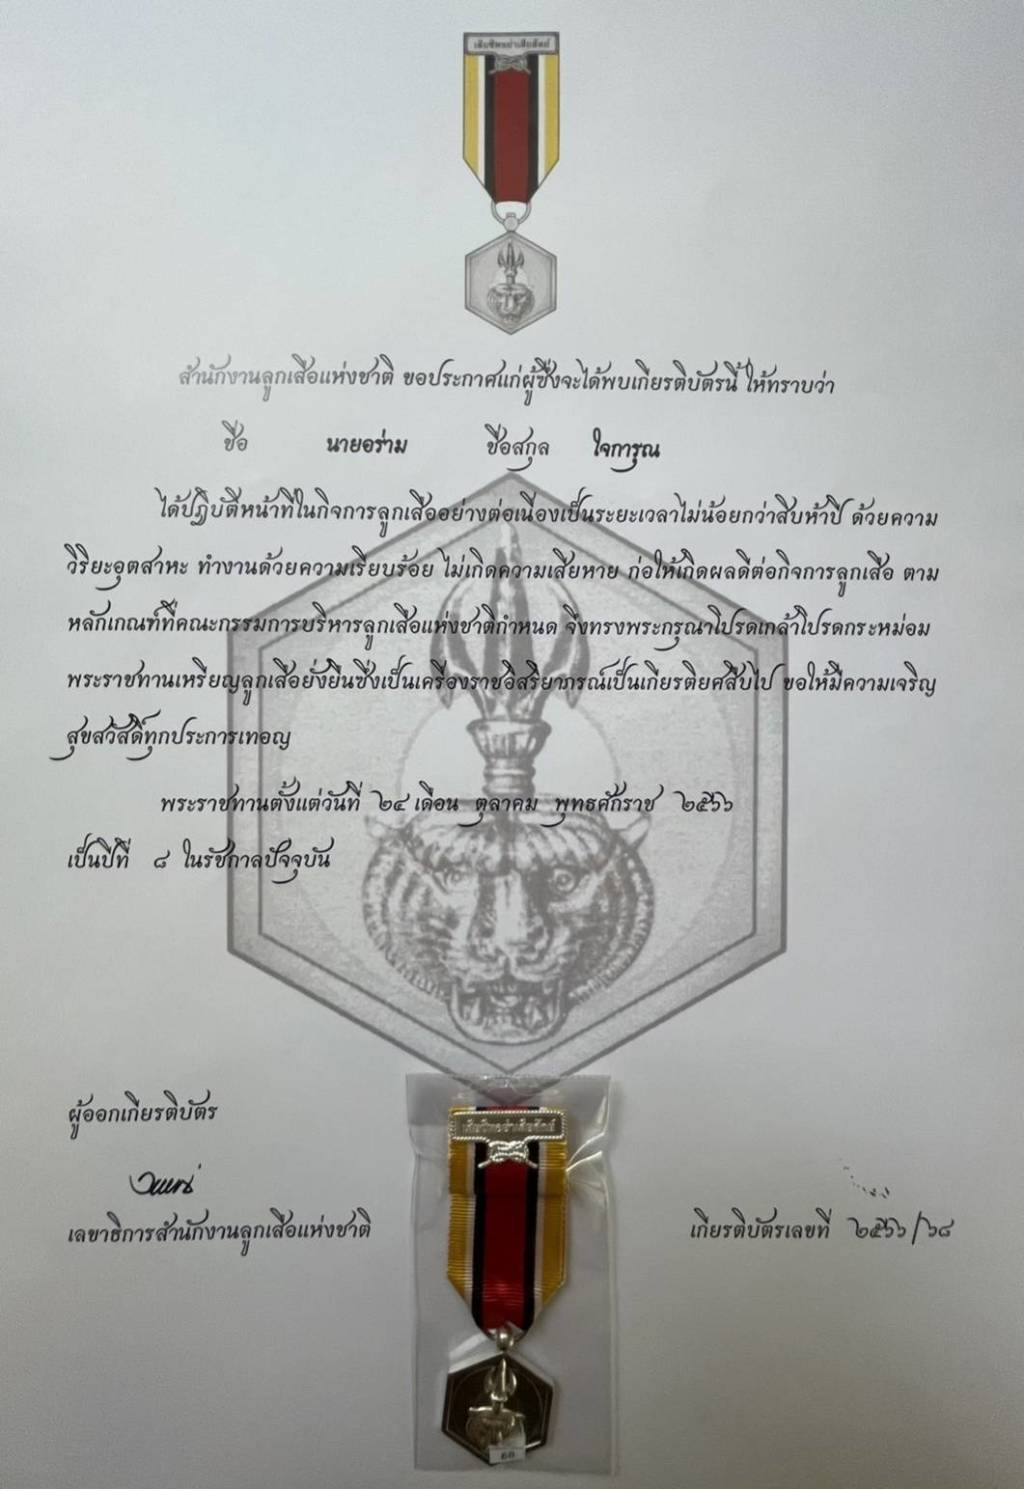 เสียชีพอย่าเสียสัตย์
สำนักงานลูกเสือแห่งชาติ ขอประกาศแก่ผู้ซึ่งจะได้พบเกียรติบัตรนี้ ให้ทราบว่า
ชื่อ นายอร่าม ชื่อสกุล ใจการุณ
ได้ปฏิบัติหน้าที่ในกิจการลูกเสืออย่างต่อเนื่องเป็นระยะเวลาไม่น้อยกว่าสิบห้าปี ด้วยความ
วิริยะอุตสาหะ ทำงานด้วยความเรียบร้อย ไม่เกิดความเสียหาย ก่อให้เกิดผลดีต่อกิจการลูกเสือ ตาม
หลักเกณฑ์ที่คณะกรรมการบริหารลูกเสือแห่งชาติกำหนด จึงทรงพระกรุณาโปรดเกล้าโปรดกระหม่อม
พระราชทานเหรียญลูกเสือยั่งยืนซึ่งเป็นเครื่องราชอิสริยาภรณ์เป็นเกียรติยศสืบไป ขอให้มีความเจริญ
สุขสวัสดิ์ทุกประการเทอญ
พระราชทานตั้งแต่วันที่ ๒๔ เดือน ตุลาคม พุทธศักราช ๒๕๖๖
เป็นปีที่ ๘ ในรัชกาลปัจจุบัน
ผู้ออกเกียรติบัตร
เลขาธิการสำนักงานลูกเสือแห่งชาติ
เกียรติบัตรเลขที่ ๒๕๖๖/๖๘
เสียชีพอย่าเสียสัตย์